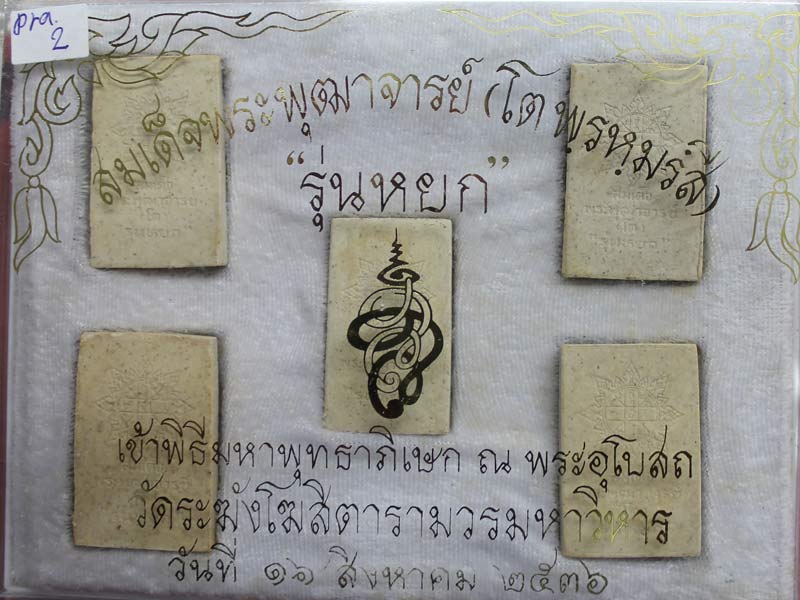 pra.
2
สมเด็จพระพุฒาจารย์ (โต พฺรหฺมรํสี)
"รุ่นหยก"
สมเด็จ
พระพุฒาจารย์
โต
รุ่นหยก
สมเด็จ
พระพุฒาจารย์
โต
"รุ่นหยก"
เข้าพิธีมหาพุทธาภิเษก ณ พระอุโบสถ
วัดระฆังโฆสิตารามวรมหาวิหาร
วันที่ ๑๖ สิงหาคม ๒๕๓๖